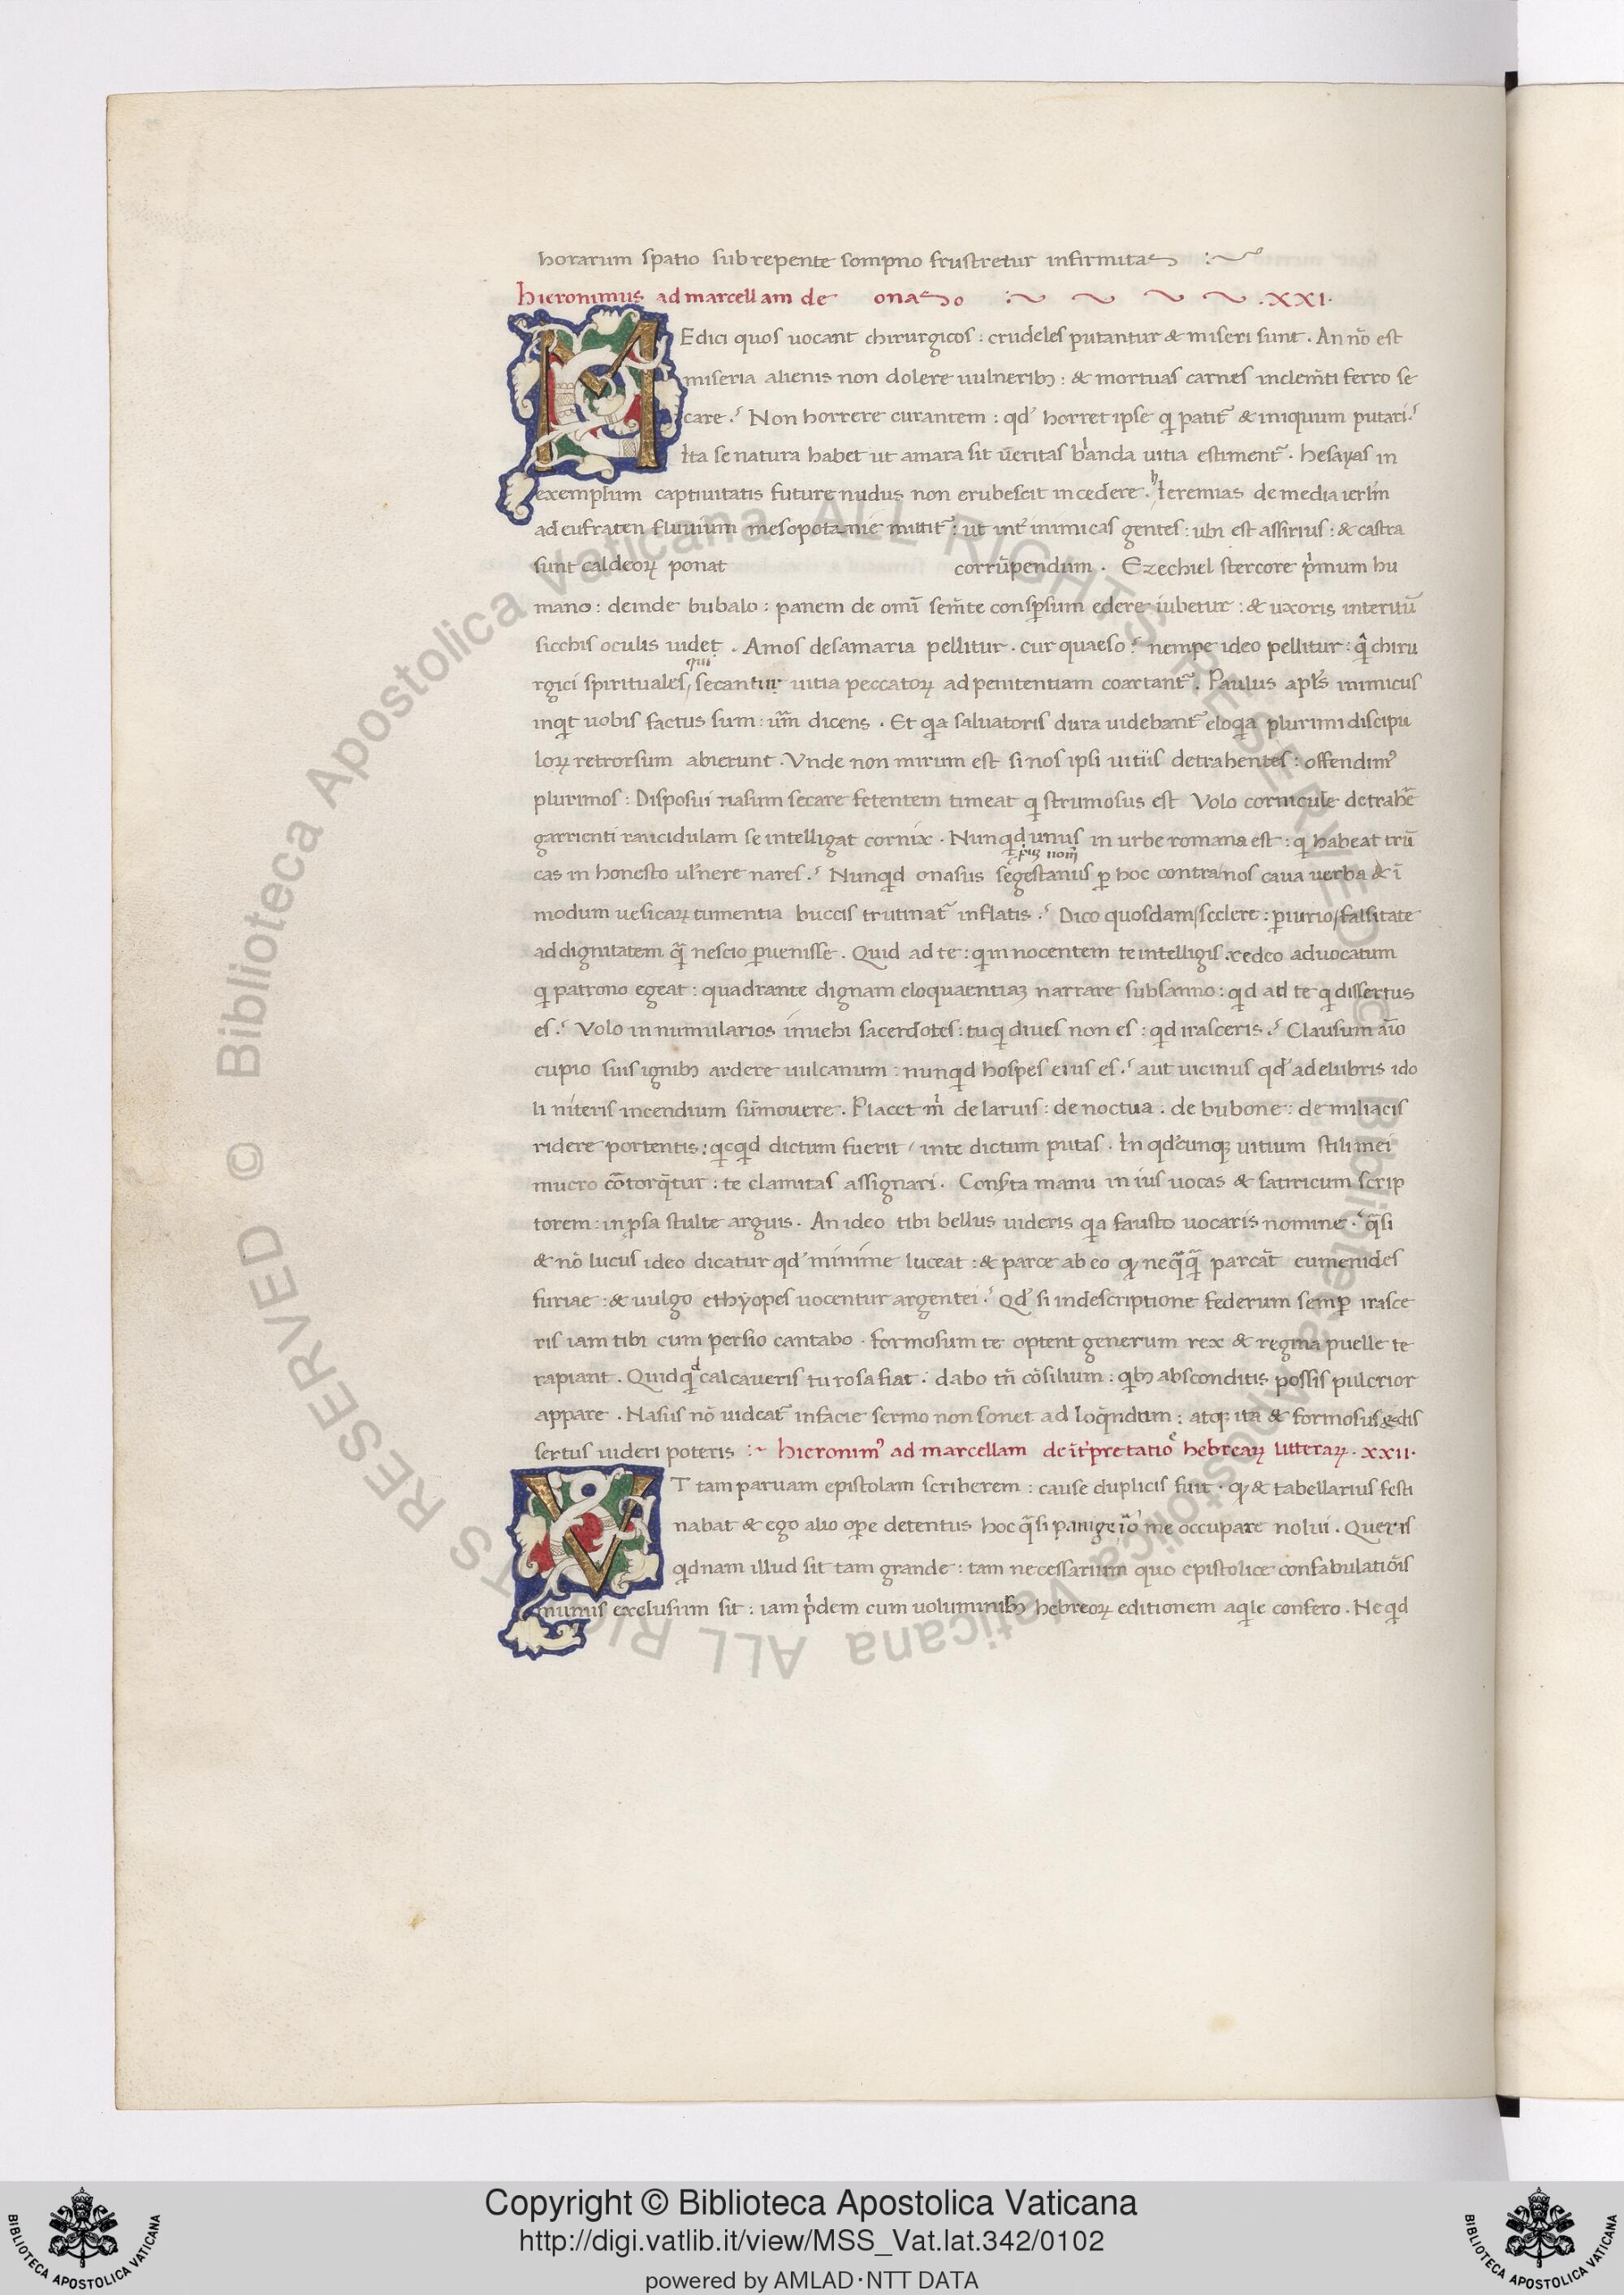 horarum spatio subrepente sompno frustretur infirmitas :~
hieronimus ad marcellam de onaso :~ ~ ~ ~ .XXI.
MEdici quos uocant chirurgicos : crudeles putantur & miseri sunt . An nō est
miseria alienis non dolere uulneribꝫ : & mortuas carnes inclem̄ti ferro se
care .ˀ Non horrere curantem : qđ horret ipse q̣ patit̃ & iniquum putari.ˀ
Ita se natura habet ut amara sit ūeritas blanda uitia estiment̃ . hesayas in
exemplum captiuitatis future nudus non erubescit incedere . hIeremias de media ierl̄m
ad eufraten fluuium mesopotamie mittit̃ : ut int̃ inimicas gentes : ubi est assirius : & castra
sunt caldeoꝝ ponat corrūpendum . Ezechiel stercore p̓mum hu
mano : deinde bubalo : panem de om̄i sem̄te consꝑsum edere iubetur : & uxoris interitū
sicchis oculis uidet . Amos de samaria pellitur . cur quaeso .ˀ nempe ideo pellitur : q̄ chiru
rgici spirituales qui secantur uitia peccatoꝝ ad penitentiam coartant̃ . Paulus apl̄s inimicus
inq̣t uobis factus sum : um̄ dicens . Et q̣a saluatoris dura uidebant̃ eloq̣a plurimi discipu
loꝝ retrorsum abierunt . Vnde non mirum est si nos ipsi uitiis detrahentes : offendimꝰ
plurimos : Disposui nasum secare fetentem timeat q̣ strumosus est Volo cornicule detrahē
garrienti rancidulam se intelligat cornix . Nunq̣d unus in urbe romana est : q̣ habeat trū
cas inhonesto uulnere nares .ˀ Nunq̣d onasus segestanus ꝑ hoc contra nos caua uerba & ī
modum uesicaꝝ tumentia buccis trutinat̃ inflatis .ˀ Dico quosdam scelere : ꝑiurio falsitate
ad dignitatem q̄ nescio ꝑuenisse . Quid ad te : q̣ innocentem te intelligis . redeo aduocatum
q̣ patrono egeat : quadrante dignam eloquaentiaꝫ narrare subsanno : q̣d ad te q̣ dissertus
es .ˀ Volo in numularios inuehi sacerdotes : tu q̣ diues non es : q̣d irasceris .ˀ Clausum aīo
cupio suis ignibꝫ ardere uulcanum : nunq̣d hospes eius es .ˀ aut uicinus qđ a delubris ido
li niteris incendium sūmouere . Placet m̓ de laruis : de noctua : de bubone : de miliacis
ridere portentis : q̣cq̣d dictum fuerit / in te dictum putas . In qđcunqꝫ uitium stili mei
mucro cōtorq̄tur : te clamitas assignari . Conserta manu in ius uocas & satiricum scrip
torem : in ꝓsa stulte arguis . An ideo tibi bellus uideris q̣a fausto uocaris nomine .ˀ q̄si
& nō lucus ideo dicatur qđ minime luceat : & parce ab eo qꝫ neq̄q̄ parcāt eumenides
furiae : & uulgo ethyopes uocentur argentei .ˀ Qđ si in descriptione federum semꝑ irasce
ris iam tibi cum persio cantabo . formosum te optent generum rex & regina puelle te
rapiant . Quidq̣d calcaueris tu rosa fiat . dabo tn̄ cōsilium : q̣bꝫ absconditis possis pulcrior
appare . Nasus nō uideat̃ in facie sermo non sonet ad loq̄ndum : atqꝫ ita & formosus & dis
sertus uideri poteris :~ hieronimꝰ ad marcellam de īt̓pretatiōe hebreaꝝ litteraꝝ . XXII.
VT tam paruam epistolam scriberem : cause duplicis fuit . qꝫ & tabellarius festi
nabat & ego alio oꝑe detentus hoc q̄si me occupare nolui . Queris
q̣dnam illud sit tam grande : tam necessarium quo epistolice confabulatiōis
munus exclusum sit : iam p̓dem cum uoluminibꝫ hebreoꝝ editionem aq̣le confero . Ne q̣d
© Biblioteca Apostolica Vaticana ALL RIGHTS RESERVED
Copyright © Biblioteca Apostolica Vaticana
http://digi.vatlib.it/view/MSS_Vat.lat.342/0102
powered by AMLAD·NTT DATA
BIBLIOTECA APOSTOLICA VATICANA
BIBLIOTECA APOSTOLICA VATICANA